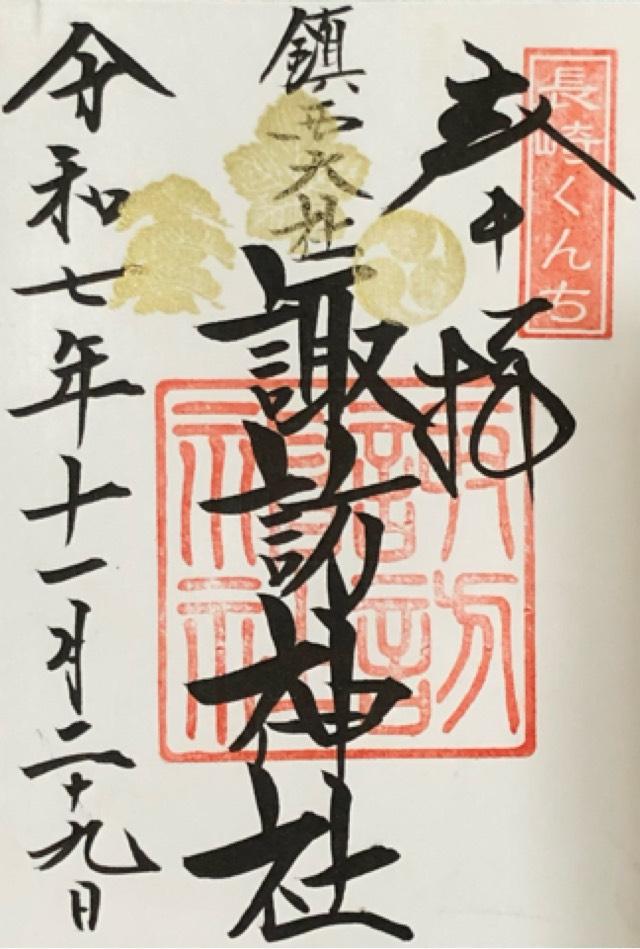 長崎くんち
奉拝
鎮西大社
諏訪神社
諏訪神社
令和七年十一月二十九日